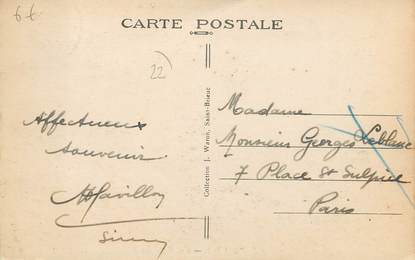 6€
CARTE POSTALE
22
Affectueux
souvenir
Collection J. Waron, Saint-Brieuc
Madame
Monsieur Georges Leblanc
7 Place St Sulpice
Paris